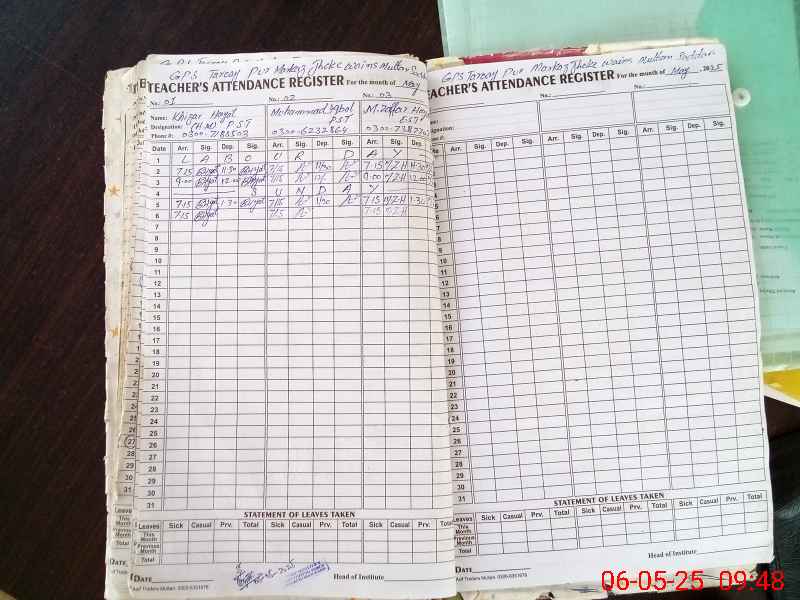 GPS Taragy Pur Markaz Jhoke Wains Multan Saddar
TEACHER'S ATTENDANCE REGISTER For the month of May
No: 01 No: 02 No: 03
Name: Khizar Hayat Mohammad Iqbal M. Zaffar
Designation: (H.M) P.S.T P.S.T E.S.T
Phone #: 0300-7183503 0300-6232864
Date Arr. Sig. Dep. Sig. Arr. Sig. Dep. Sig. Arr. Sig. Dep.
1 L A B O U R D A Y
2 7:15 11:30 7/15 11/30 7:15 M/Z.H
3 9:00 12:00 9:00 M/Z.H 12:00
4 S U N D A Y
5 7:15 1:30 7/15 1/30 7:15 M/Z.H
6 7:15 7/15 7:15 M/Z.H
7
8
9
10
11
12
13
14
15
16
17
18
19
20
21
22
23
24
25
26
27
28
29
30
31
STATEMENT OF LEAVES TAKEN
Leaves Sick Casual Prv. Total Sick Casual Prv. Total Sick Casual Prv.
This Month
Previous Month
Total
DATE Head of Institute
Asif Traders Multan
GPS Taragy Pur Markaz Jhoke Wains Multan Saddar
TEACHER'S ATTENDANCE REGISTER For the month of May 2025
No: No:
Arr. Sig. Dep. Sig. Arr. Sig. Dep. Sig. Arr. Sig. Dep. Sig.
10
11
12
13
14
15
16
17
18
19
20
21
22
23
24
25
26
27
28
29
30
31
STATEMENT OF LEAVES TAKEN
Leaves Sick Casual Prv. Total Sick Casual Prv. Total Sick Casual Prv. Total
This Month
Previous Month
Total
DATE Head of Institute
Asif Traders Multan
06-05-25 09:48